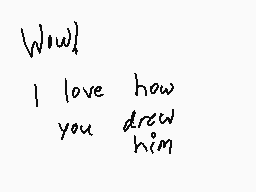 Wow!
I love how
you drew
him